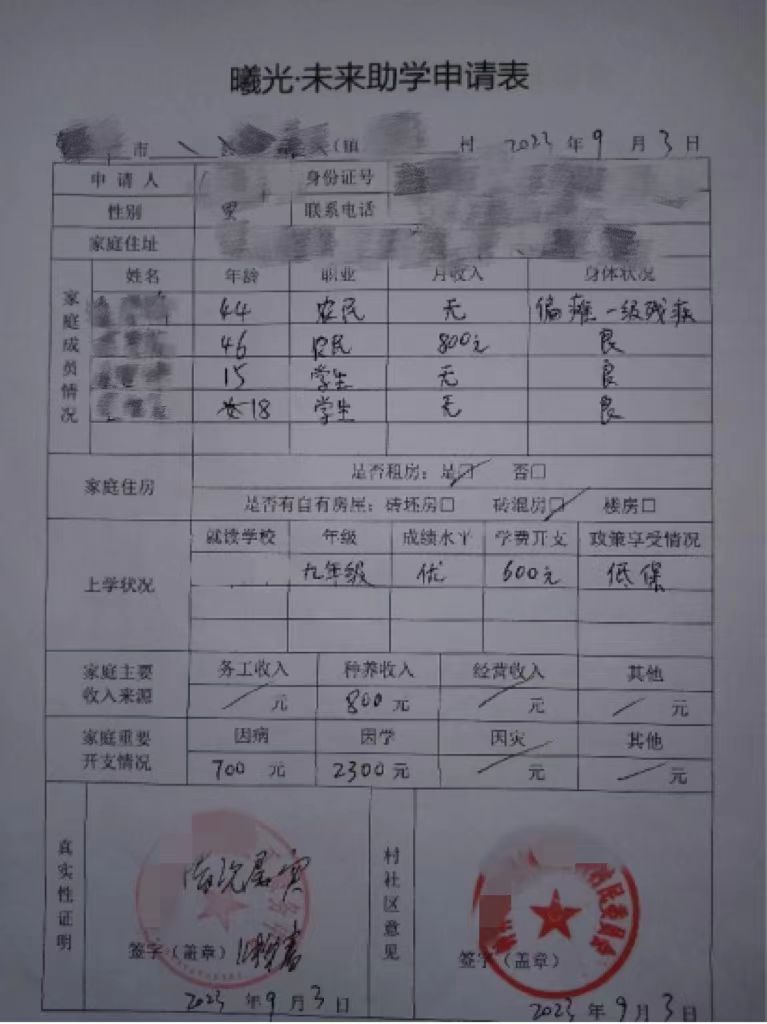 曦光·未来助学申请表
市 (镇 村 2023 年 9 月 3 日
申请人 身份证号
性别 男 联系电话
家庭住址
家庭成员情况 姓名 年龄 职业 月收入 身体状况
44 农民 无 偏瘫一级残疾
46 农民 800元 良
15 学生 无 良
18 学生 无 良
家庭住房 是否租房：是□ 否□
是否有自有房屋：砖坯房□ 砖混房□ 楼房□
上学状况 就读学校 年级 成绩水平 学费开支 政策享受情况
九年级 优 600元 低保
家庭主要收入来源 务工收入 种养收入 经营收入 其他
/ 元 800 元 / 元 / 元
家庭重要开支情况 因病 因学 因灾 其他
700 元 2300 元 / 元 / 元
真实性证明 情况属实 村社区意见
签字（盖章） 签字（盖章）
2023 年 9 月 3 日 2023 年 9 月 3 日